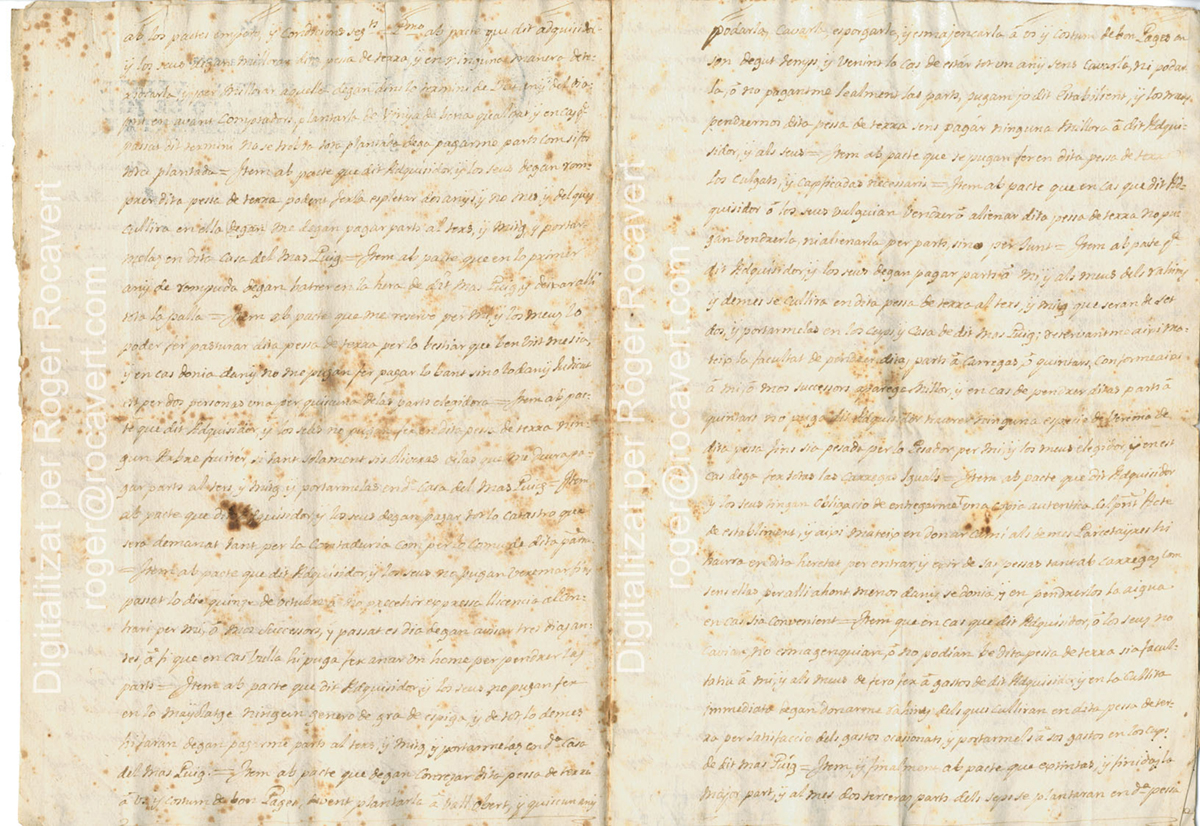 ab los pactes y Conditions seg.ts Primo ab pacte que dit adquisidor
y los seus degan millorar dita pesa de terra y en ninguna manera dete-
riorarla, y per millorar aquella degan dins lo termini de anys del dia
pnt. en avant Comptadors, plantarla de Vinya de bona y en cas q.e
passat dit termini no se trobia tota plantada dega pagarme parts com si fos
tota plantada = Item ab pacte que dit Adquisidor, y los seus degan rom-
prer dita pessa de terra podent ferla espletar dos anys, y no mes, y del q.e
Cullira en ella degan me degan pagar parts al ters, y mitg, y portar-
melas en dita Casa del Mas Puig = Item ab pacte que en lo primer
any de rompuda degan batrer en la hera de dit Mas Puig, y deixar alli
tota la palla = Item ab pacte que me reservo per mi, y los meus lo
poder fer pasturar dita pessa de terra per lo bestiar que ben vist me sia,
y en cas donia dany no me pugan fer pagar lo bant sino lo dany Judicat
per dos personas una per quiscuna de las parts elegidora = Item ab pac-
te que dit Adquisidor, y los seus no pugan en dita pesa de terra nin-
gun Arbre fruiter, si tant solament sis Oliveras de las que me deura pa-
gar parts al ters, y mitg, y portarmelas en d.a Casa del Mas Puig = Item
ab pacte que dit Adquisidor, y los seus degan pagar tot lo Catastro que
sera demanat tant per la Contaduria com per lo Comu de dita
= Item ab pacte que dit Adquisidor, y los seus no pugan Veremar fins
passat lo dia quinse de octubre no precehint expressa llicencia al Con-
trari per mi, ò mos Successors, y passat est dia degan avisar tres dias an-
tes, à fi que en cas Vulla hi puga fer anar un home per pendrer las
parts = Item ab pacte que dit Adquisidor, y los seus no pugan fer
en lo ningun genero de gra de espiga, y de tot lo demes
hi faran degan pagarme parts al ters, y mitg, y portarmelas en d.a Casa
del Mas Puig. = Item ab pacte que degan Conrear dita pessa de terra
à Us, y costum de bon Pages, havent plantarla à Vall Obert, y quiscun any
podarla, Cavarla, esporgarla, y esmajencarla à Us y Costum de bon Pages en
son degut temps, y Venint lo Cas de estar tot un any sens Cavarla, ni podar-
la, ò no pagantme lealment las parts, pugam jo dit Estabilient, y los meus
pendrernos dita pessa de terra sens pagar ninguna millora à dit Adqui-
sidor, y als seus = Item ab pacte que se pugan fer en dita pesa de terra
los Culgats, y Capficadas necesaris = Item ab pacte que en cas que dit Ad-
quisidor ò los seus vulguian Vendrer ò alienar dita pessa de terra no pu-
gan vendrerla, ni alienarla per parts, sino per Junt = Item ab pacte q.e
dit Adquisidor, y los seus degan pagar parts à mi, y als meus dels rahims
y demes se Cullira en dita pessa de terra al ters, y mitg que seran de set
dos, y portarmelas en los Cups, y Casa de dit Mas Puig; reservantme aixi ma-
teix la facultat de pendrer ditas parts à Carregas, ò quintars, Conforme aixis
à mi, ò mos successors aparega millor, y en cas de pendrer ditas parts à
quintars no puga dit Adquisidor traurer ninguna especie de Verema de
dita pesa fins sia pesada per lo Pesador per mi, y los meus elegidor, y en est
Cas dega fer totas las Carregas Iguals = Item ab pacte que dit Adquisidor
y los seus tingan Obligacio de entregarme una Copia autentica del pnt. Acte
de establiment, y aixi mateix en donar Cami als demes Parcers hi
haura en dita heretat per entrar, y exir de sas pessas tant ab Carregas com
sens ellas per alli ahont menos dany se donia, y en pendrerlos la aigua
en cas sia convenient = Item que en cas que dit Adquisidor, ò los seus no
Cavian, no esmagenquian, ò no podian be dita pesa de terra sia facul-
tatiu à mi, y als meus de fero fer à gastos de dit Adquisidor, y en la Cullita
immediata degan donarme rahims dels que Culliran en dita pessa de ter-
ra per satisfaccio dels gastos ocasionats, y portarmels à sos gastos en los Cups
de dit Mas Puig = Item, y finalment ab pacte que extintas, y finidas la
major part, y al mes dos terceras parts dels seps se plantaran en d.a pessa